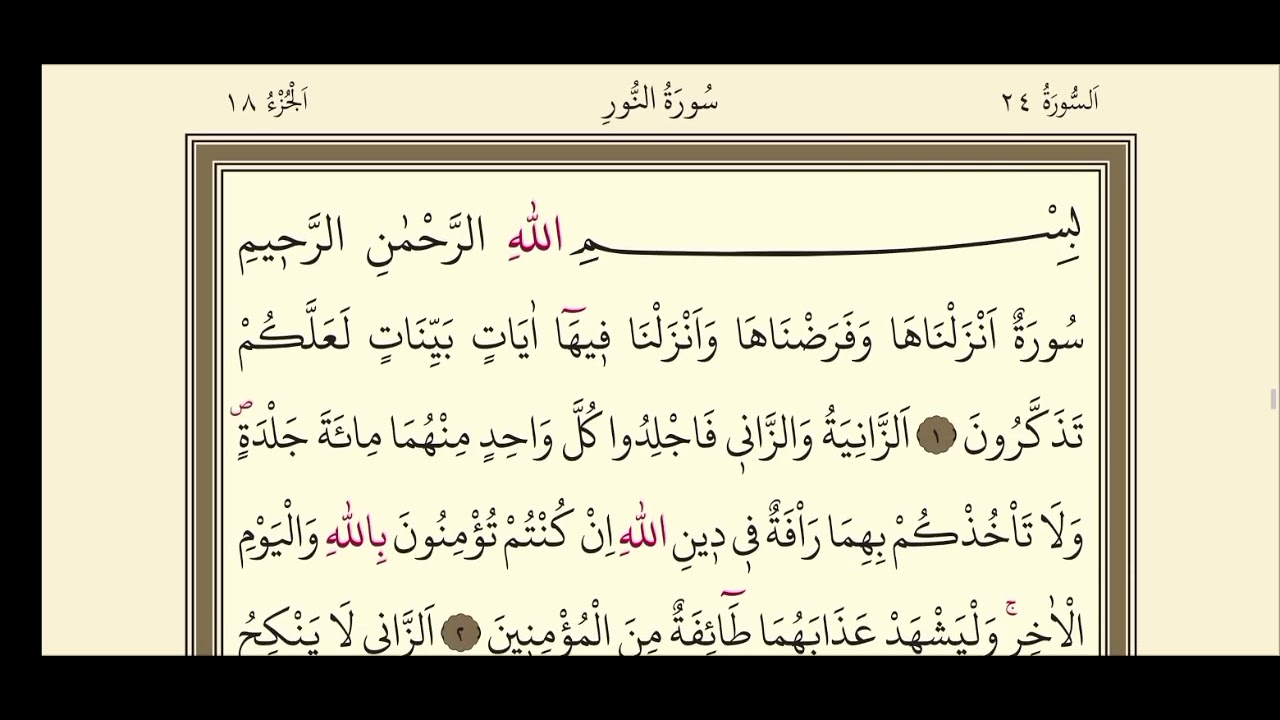 اَلسُّورَةُ ٢٤ سُورَةُ النُّورِ اَلْجُزْءُ ١٨
بِسْمِ اللّٰهِ الرَّحْمٰنِ الرَّحٖيمِ
سُورَةٌ اَنْزَلْنَاهَا وَفَرَضْنَاهَا وَاَنْزَلْنَا فٖيهَٓا اٰيَاتٍ بَيِّنَاتٍ لَعَلَّكُمْ
تَذَكَّرُونَ ١ اَلزَّانِيَةُ وَالزَّانٖي فَاجْلِدُوا كُلَّ وَاحِدٍ مِنْهُمَا مِائَةَ جَلْدَةٍۖ
وَلَا تَأْخُذْكُمْ بِهِمَا رَأْفَةٌ فٖي دٖينِ اللّٰهِ اِنْ كُنْتُمْ تُؤْمِنُونَ بِاللّٰهِ وَالْيَوْمِ
الْاٰخِرِۚ وَلْيَشْهَدْ عَذَابَهُمَا طَٓائِفَةٌ مِنَ الْمُؤْمِنٖينَ ٢ اَلزَّانٖي لَا يَنْكِحُ